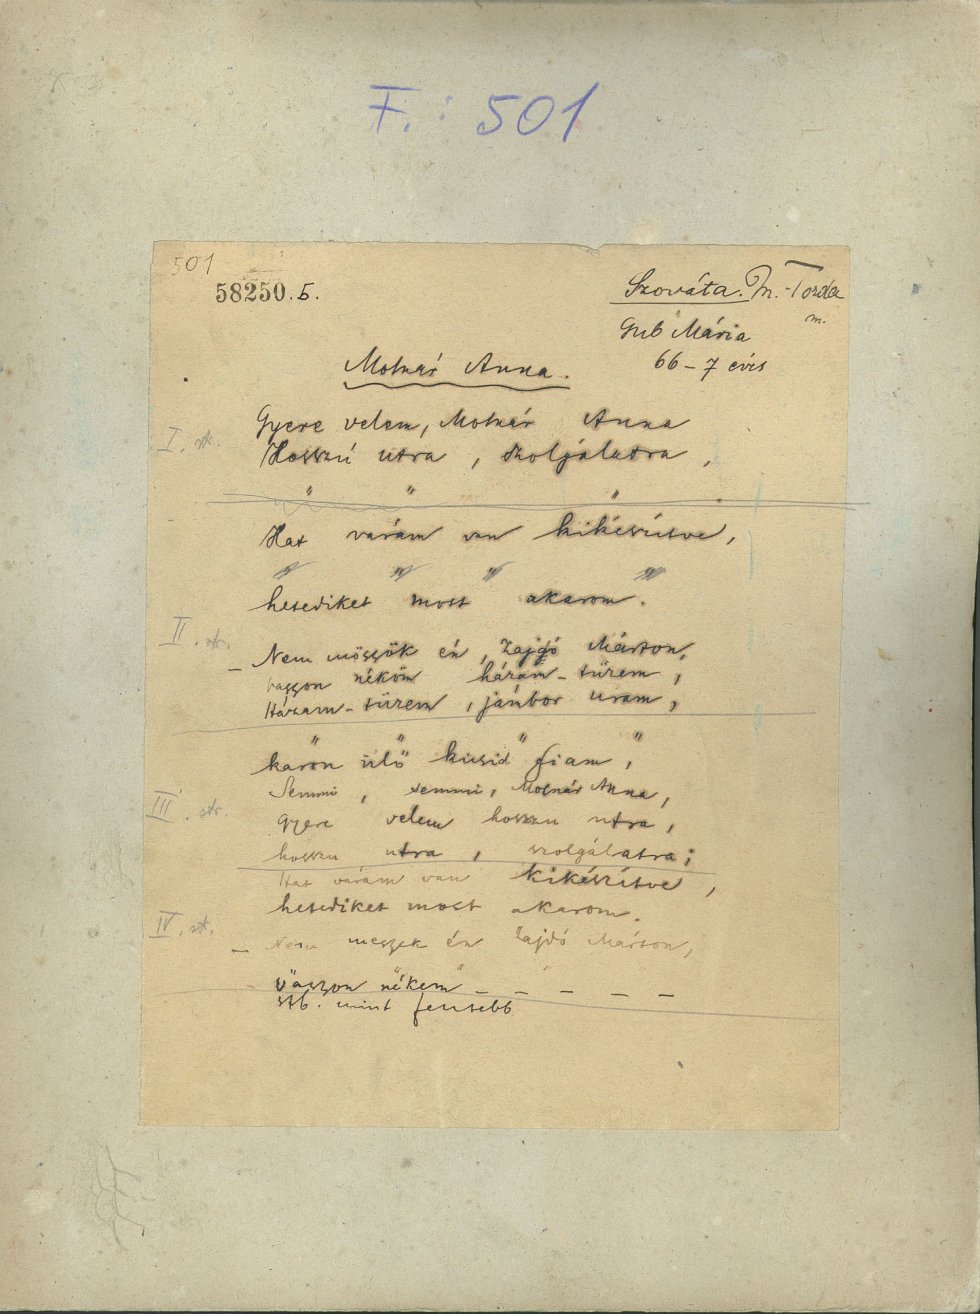 F.: 501
501
58250.5.
Szováta. M.-Torda
m.
Gub Mária
66-7 éves
Molnár Anna.
Gyere velem, Molnár Anna
I. str.
Hosszú utra, szolgálatra,
" " "
Hat várám van kikészítve,
" " " "
hetediket most akarom.
II. str.
– Nem möszök én, Zajgó Márton,
vaggon néköm házám-tüzem,
Házam-tüzem, jámbor uram,
" " " "
karon ülő kicsid fiam,
Semmi, semmi, Molnár Anna,
III. str.
gyere velem hosszu utra,
hosszu utra, szolgálatra;
Hat várám van kikészítve,
hetediket most akarom.
IV. str.
– Nem meszek én Zajdó Márton,
" " "
vaggon nékem – – – – –
stb. mint fentebb